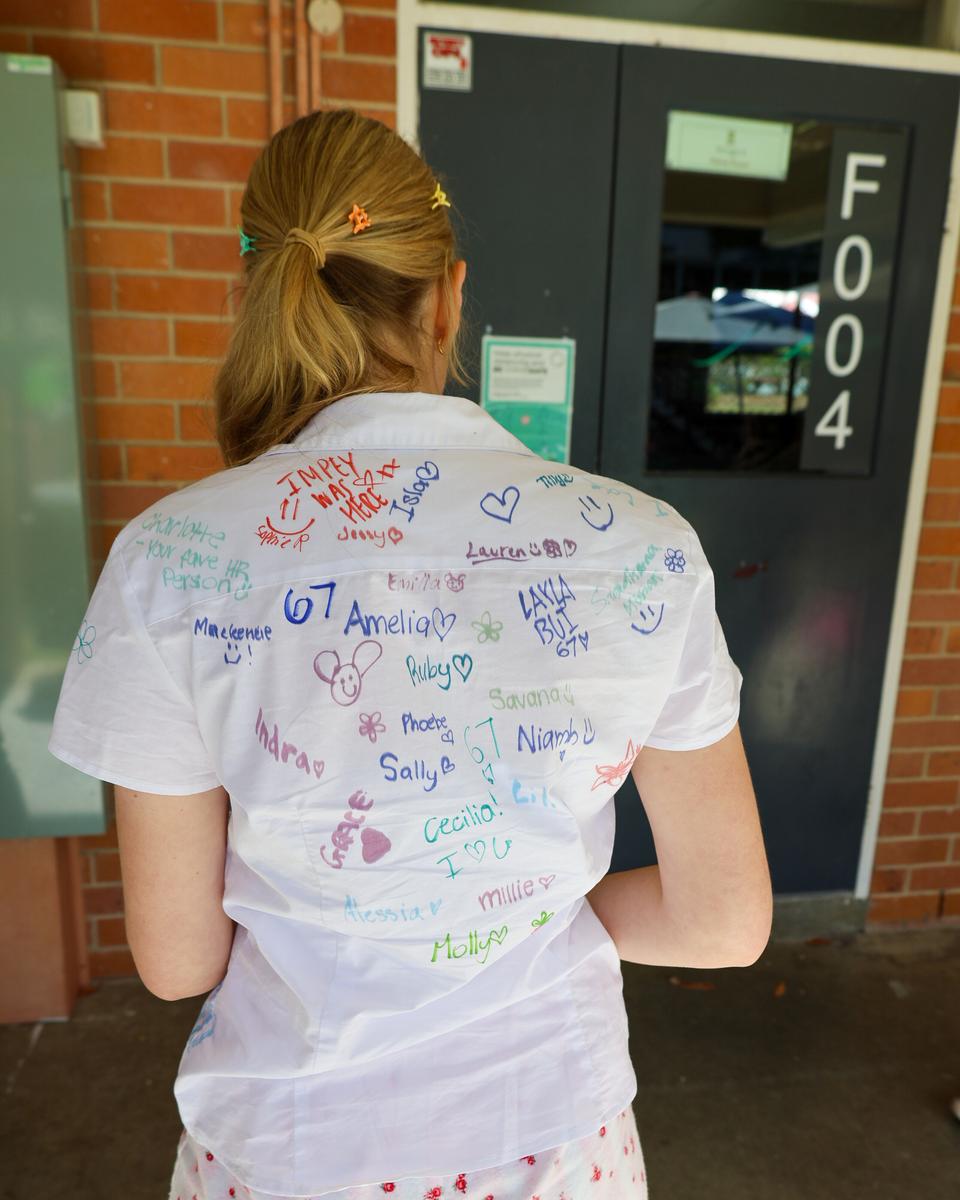 F
0
0
4
IMPEY
WAS
HERE
xx
Isla
Sophie R
Jenny
Lauren
Charlotte
- Your fave HR
Person
Emilia
67
Amelia
LAYLA
BUI
67
Mackenzie
!
Ruby
Savana
Phoebe
67
Niamh
Indra
Sally
Lil
GRACE
Cecilia!
I U
Alessia
millie
Molly